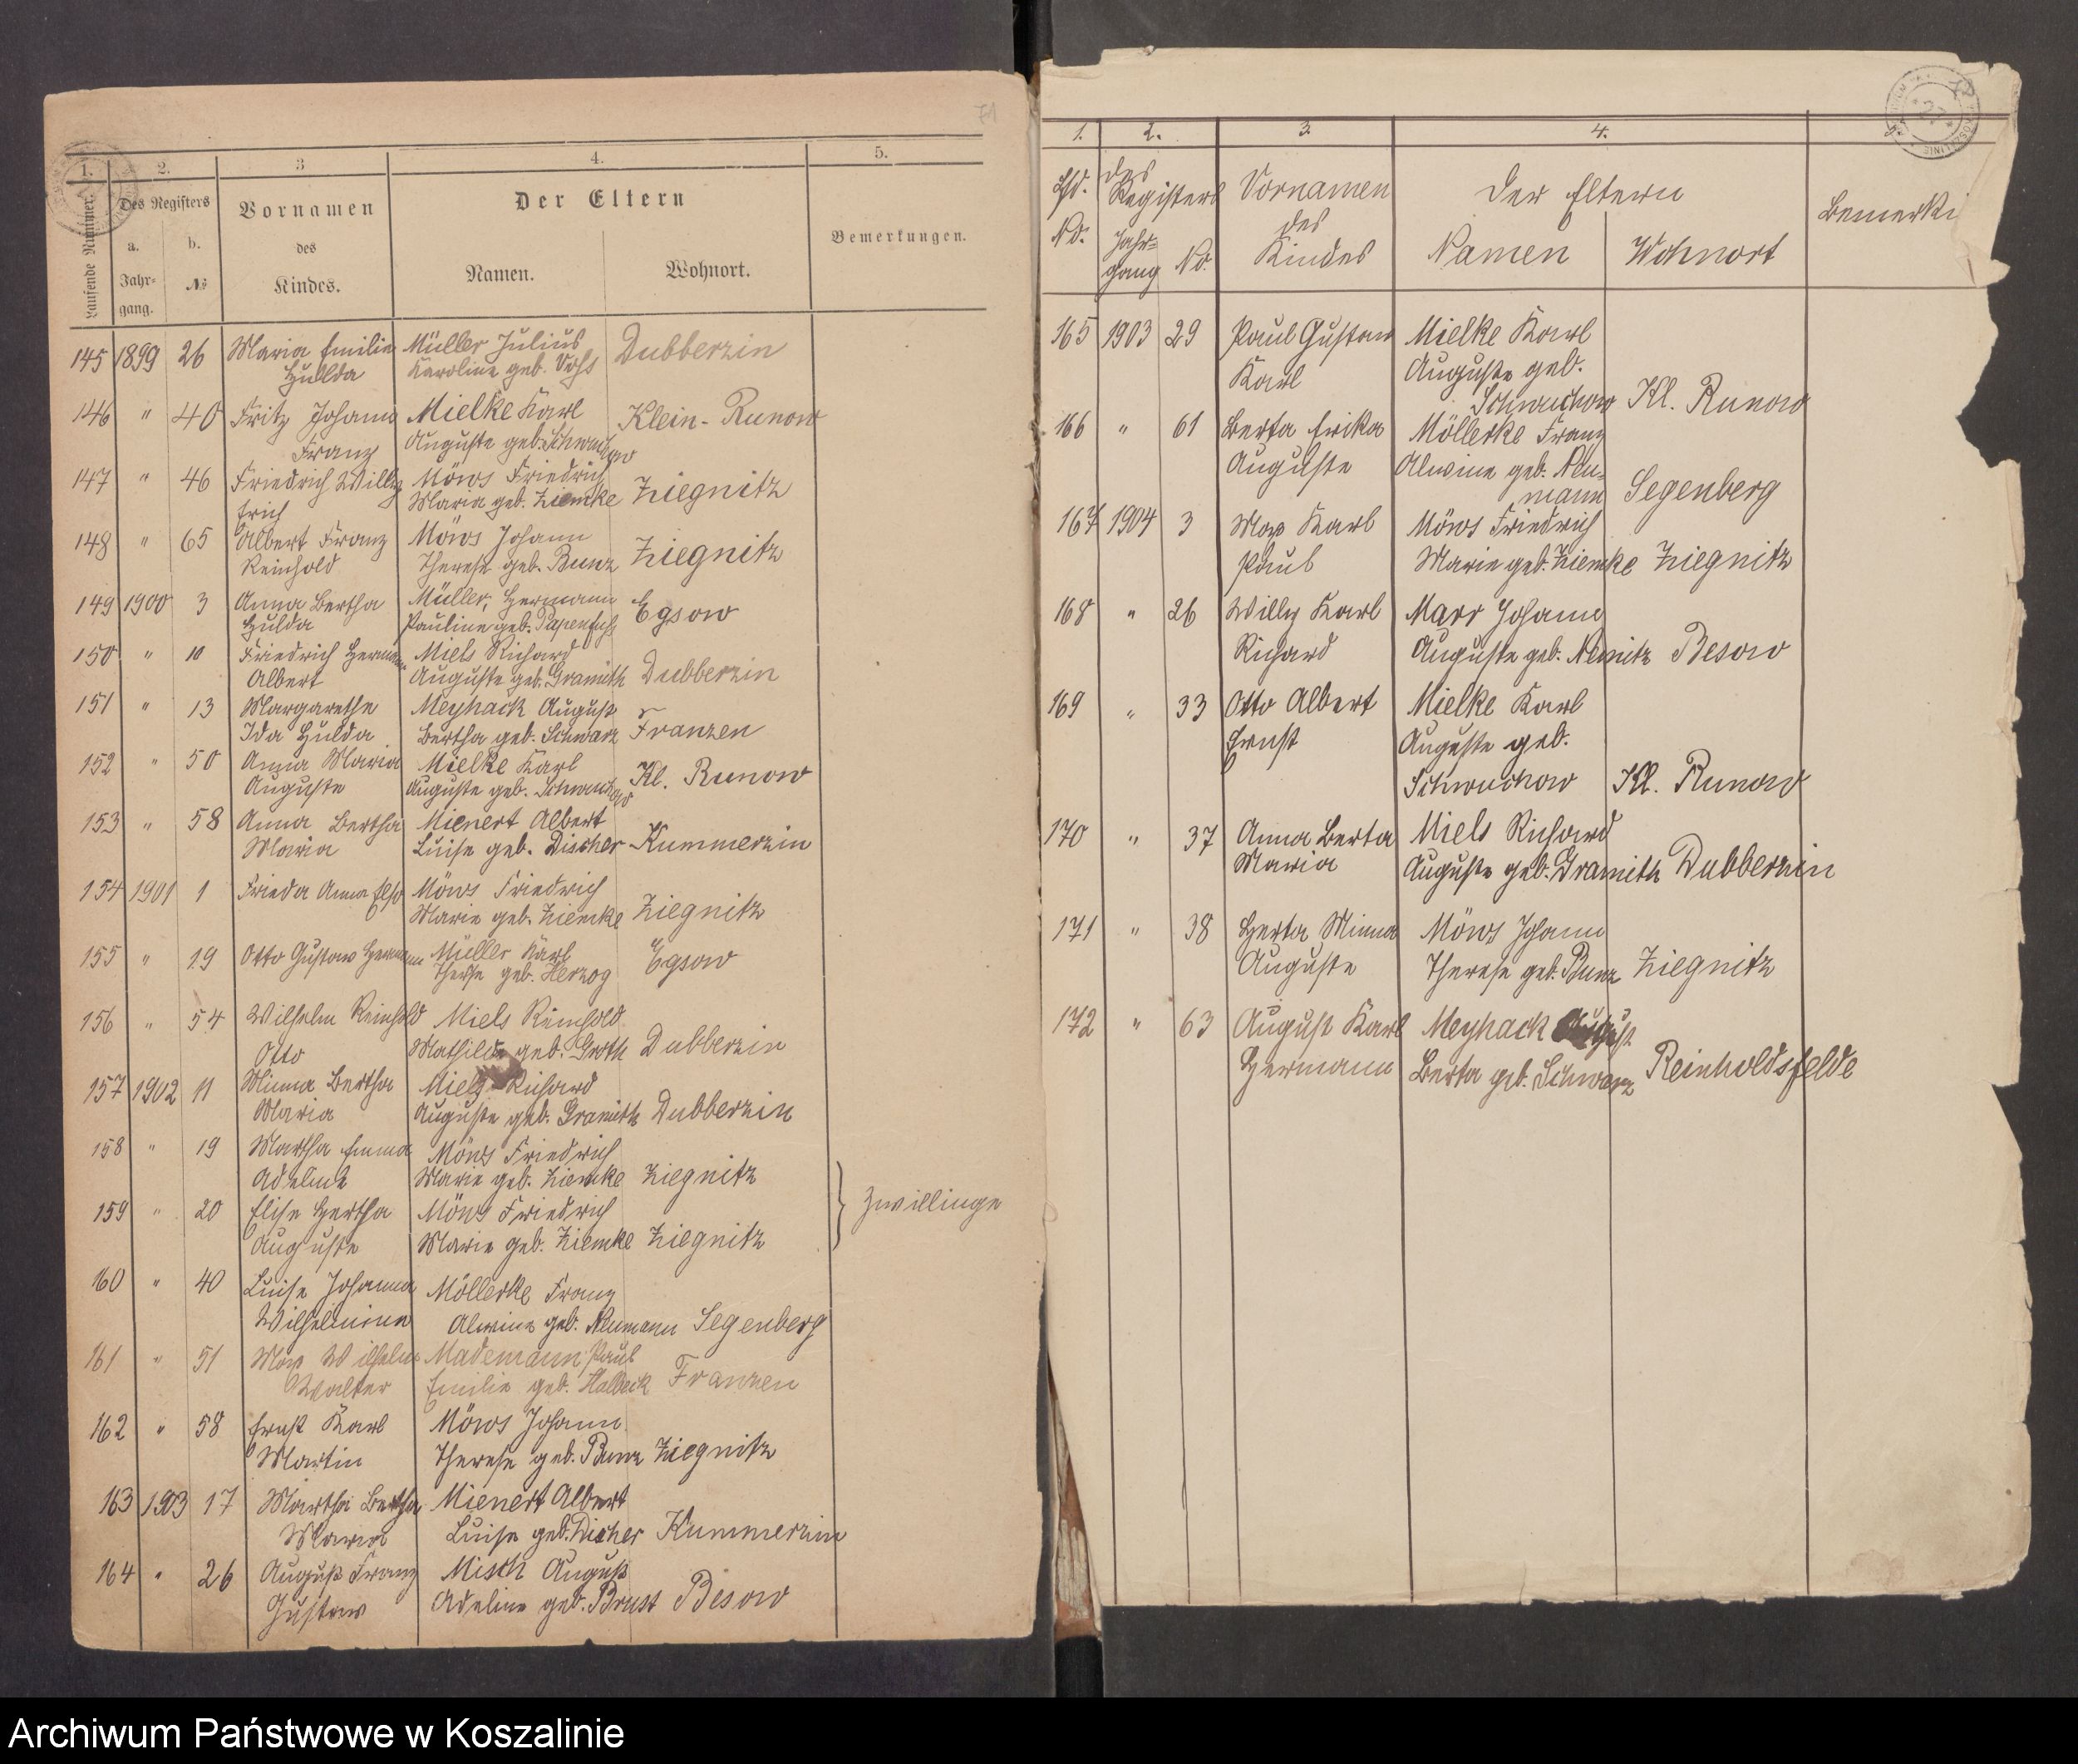 71
1. 2. 3 4. 5.
Laufende Nummer. Des Registers Vornamen Der Eltern
a. b. des Bemerkungen.
Jahr- № Kindes. Namen. Wohnort.
gang.
145 1899 26 Maria Emilie Müller Julius Dubberzin
Hullda Karoline geb. Voss
146 " 40 Fritz Johann Mielke Karl Klein-Runow
Franz Auguste geb. Schwuchow
147 " 46 Friedrich Willy Möws Friedrich Ziegnitz
Erich Maria geb. Ziemke
148 " 65 Albert Franz Möws Johann Ziegnitz
Reinhold Therese geb. Bunz
149 1900 3 Anna Bertha Müller, Hermann Egsow
Hulda Pauline geb. Papenfuß
150 " 10 Friedrich Hermann Miels Richard Dubberzin
Albert Auguste geb. Gramith
151 " 13 Margarethe Meyhack August Franzen
Ida Hulda Bertha geb. Schwarz
152 " 50 Anna Maria Mielke Karl Kl. Runow
Auguste Auguste geb. Schwuchow
153 " 58 Anna Bertha Mienert Albert Kummerzin
Maria Luise geb. Discher
154 1901 1 Frieda Anna Else Möws Friedrich Ziegnitz
Marie geb. Ziemke
155 " 19 Otto Gustav Hermann Müller Karl Egsow
Therese geb. Herzog
156 " 54 Wilhelm Reinhold Miels Reinhold
Otto Mathilde geb. Groth Dubberzin
157 1902 11 Minna Bertha Miels Richard
Maria Auguste geb. Gramith Dubberzin
158 " 19 Martha Emma Möws Friedrich
Adeline Marie geb. Ziemke Ziegnitz
159 " 20 Elise Hertha Möws Friedrich } Zwillinge
Auguste Marie geb. Ziemke Ziegnitz
160 " 40 Luise Johanna Möllerke Franz
Wilhelmine Alwine geb. Neumann Segenberg
161 " 51 Max Wilhelm Mademann Paul
Walter Emilie geb. Halbeck Franzen
162 " 58 Ernst Karl Möws Johann
Martin Therese geb. Bunz Ziegnitz
163 1903 17 Martha Bertha Mienert Albert
Maria Luise geb. Discher Kummerzin
164 " 26 August Franz Misch August
Gustav Adeline geb. Brust Besow
1. 2. 3. 4.
Lfd. des Registers Vornamen Der Eltern Bemerku
No. Jahr- No. des
gang Kindes Namen Wohnort
165 1903 29 Paul Gustav Mielke Karl
Karl Auguste geb.
Schwuchow Kl. Runow
166 " 61 Berta Erika Möllerke Franz
Auguste Alwine geb. Neu-
mann Segenberg
167 1904 3 Max Karl Möws Friedrich
Paul Marie geb. Ziemke Ziegnitz
168 " 26 Willy Karl Marr Johann
Richard Auguste geb. Nemitz Besow
169 " 33 Otto Albert Mielke Karl
Ernst Auguste geb.
Schwuchow Kl. Runow
170 " 37 Anna Berta Miels Richard
Maria Auguste geb. Gramith Dubberzin
171 " 38 Herta Minna Möws Johann
Auguste Therese geb. Bunz Ziegnitz
172 " 63 August Karl Meyhack August
Hermann Berta geb. Schwarz Reinholdsfelde
Archiwum Państwowe w Koszalinie